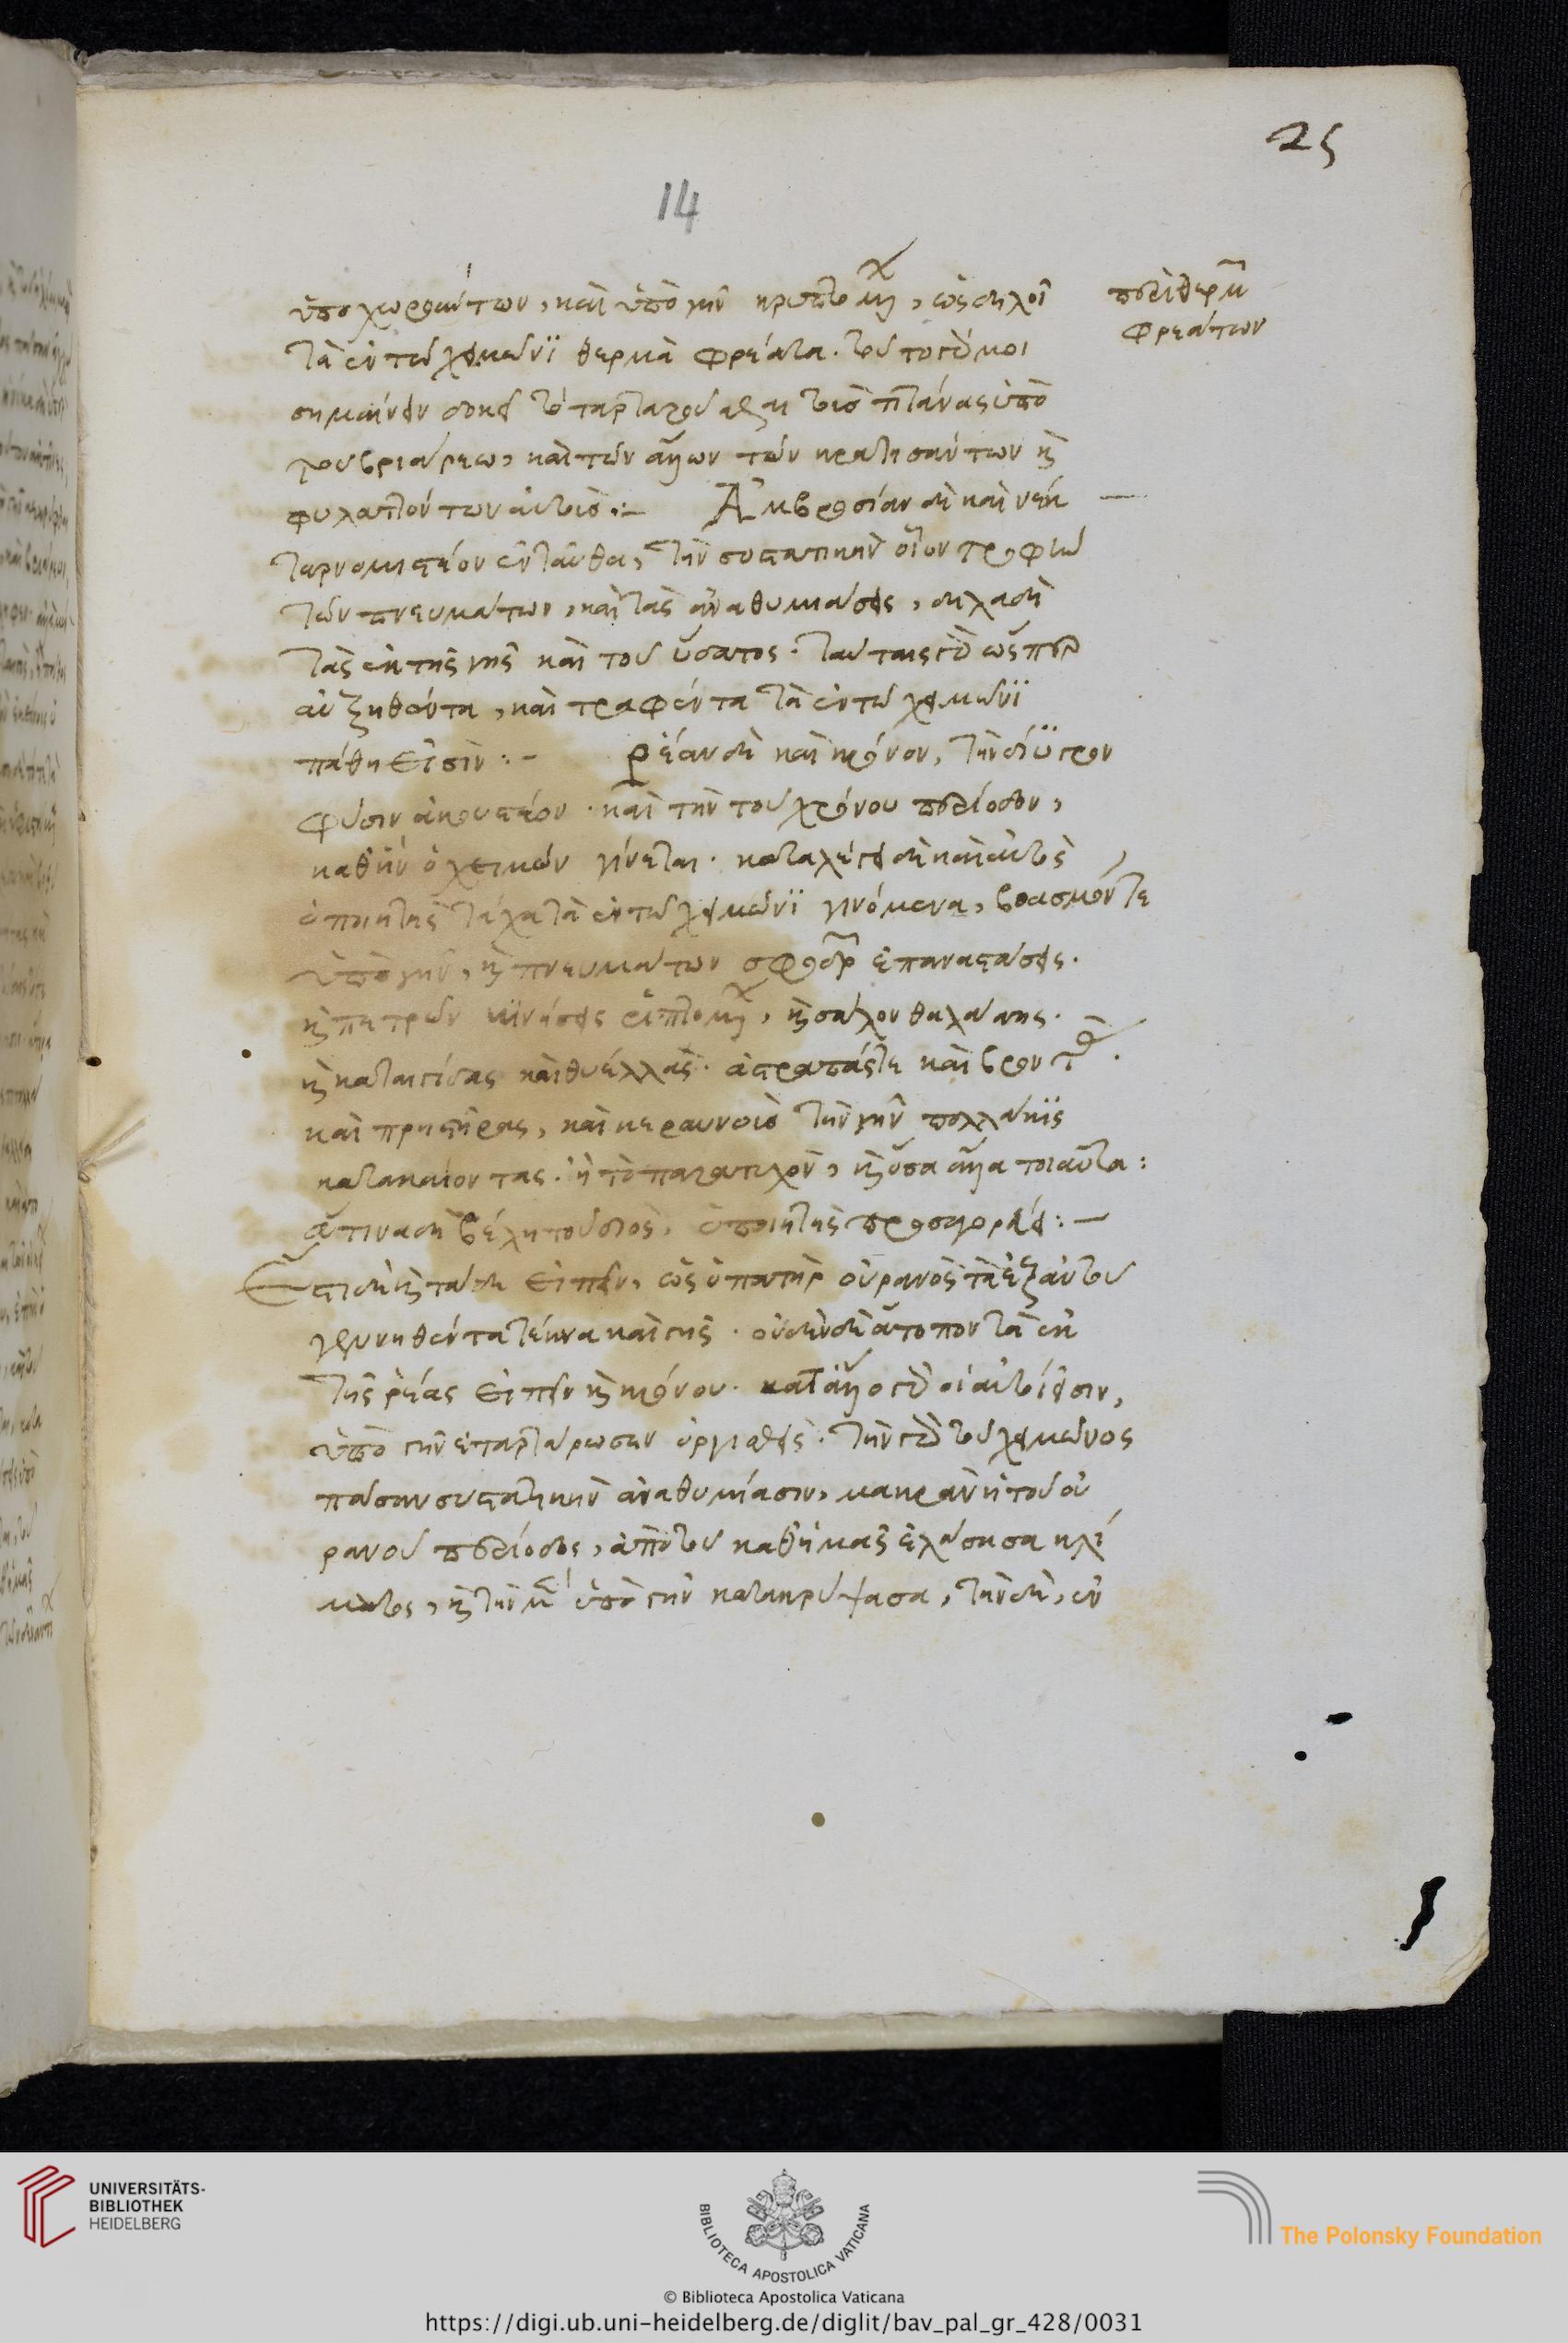 25
14
ὑποχωρούντων, καὶ ὑπὸ γῆν κρυπτομένων, ὡς δηλοῖ
τὰ ἐν τῷ χειμῶνι θερμὰ φρέατα. τοῦτο γάρ μοι
σημαίνειν δοκεῖ τὸ ταρταροῦσθαι τοὺς τιτᾶνας ὑπὸ
τοῦ βριάρεω, καὶ τῶν ἄλλων τῶν κρατησάντων καὶ
φυλαττόντων αὐτούς :– Ἀμβροσίαν δὲ καὶ νέκ
ταρ νομιστέον ἐνταῦθα, τὴν συστατικὴν οἷον τροφὴν
τῶν πνευμάτων, καὶ τὰς ἀναθυμιάσεις, δηλαδὴ
τὰς ἐκ τῆς γῆς καὶ τοῦ ὕδατος. ταύταις γὰρ ὥσπερ
αὐξηθέντα, καὶ τραφέντα τὰ ἐν τῷ χειμῶνι
πάθη εἰσίν :– ῥέαν δὲ καὶ κρόνον, τὴν δίυγρον
φύσιν ἀκουστέον. καὶ τὴν τοῦ χρόνου περίοδον,
καθ' ἣν ὁ χειμὼν γίνεται. καταλέγει δὲ καὶ αὐτὸς
ὁ ποιητὴς τάχα τὰ ἐν τῷ χειμῶνι γινόμενα, βρασμόν τε
ὑπὸ γῆν, καὶ πνευμάτων σφοδρ ἐπαναστάσεις.
καὶ πετρῶν κινήσεις ῥιπτομένων, καὶ σάλον θαλάττης.
καὶ καταιγίδας καὶ θυέλλας. ἀστραπάς τε καὶ βροντάς.
καὶ πρηστῆρας, καὶ κεραυνοὺς τὴν γῆν πολλάκις
κατακαίοντας. ἢ τὸ παραστυχὸν, καὶ ὅσα ἄλλα τοιαῦτα:
ἅτινα δὴ βέλη τοῦ διὸς, ὁ ποιητὴς προσαγορεύει :–
Ἔτι δὲ καὶ ταῦτα εἰπεῖν, ὡς ὁ πατὴρ οὐρανὸς τὰ ἐξ αὐτοῦ
γεννηθέντα τέκνα καὶ γῆς. οὐδὲν δὲ ἄτοπον τὰ ἐκ
τῆς ῥέας εἰπεῖν καὶ κρόνου. κατ' ἄλλο γὰρ οἱ αὐτοί εἰσιν,
ὑπὸ γῆν ἐταρτάρωσεν ὀργισθείς. τὴν γὰρ τοῦ χειμῶνος
πᾶσαν συστατικὴν ἀναθυμίασιν, μακρὰν ἡ τοῦ οὐ
ρανοῦ περίοδος, ἀπὸ τοῦ καθ' ἡμᾶς ἐλάσασα κλί
ματος, καὶ τὴν μὲν ὑπὸ γῆν κατακρύψασα, τὴν δὲ, ἐν
περὶ θερμῶν
φρεάτων
UNIVERSITÄTS-
BIBLIOTHEK
HEIDELBERG
BIBLIOTECA APOSTOLICA VATICANA
The Polonsky Foundation
© Biblioteca Apostolica Vaticana
https://digi.ub.uni-heidelberg.de/diglit/bav_pal_gr_428/0031